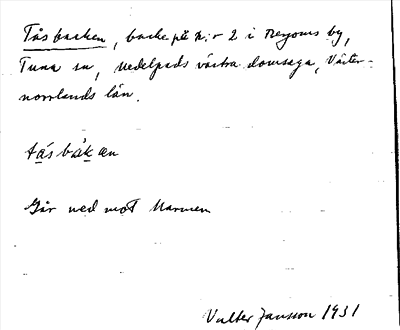 Tåsbacken, backe på N:r 2 i Nergoms by,
Tuna sn, Medelpads västra domsaga, Väster-
norrlands län.
tǻsbàkan
Går ned mot Marmen
Valter Jansson 1931